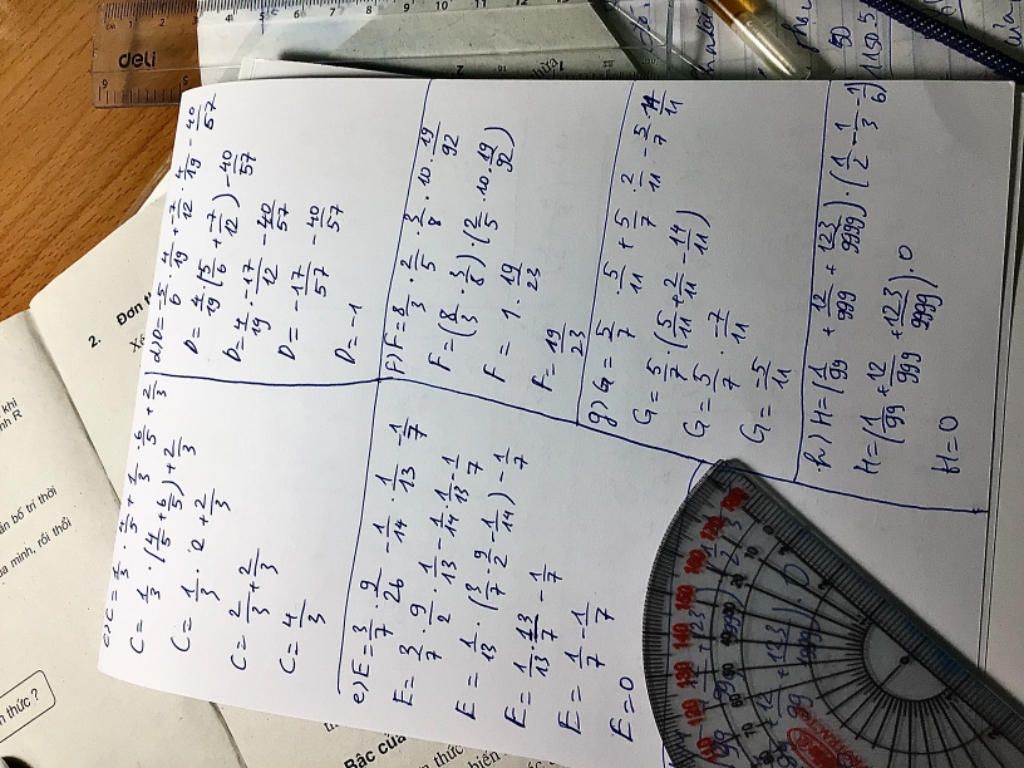 c) C = 1/3 . 4/5 + 1/3 . 6/5 + 2/3
C = 1/3 . (4/5 + 6/5) + 2/3
C = 1/3 . 2 + 2/3
C = 2/3 + 2/3
C = 4/3
d) D = -5/6 . 4/19 + -7/12 . 4/19 - 40/57
D = 4/19 . (-5/6 + -7/12) - 40/57
D = 4/19 . -17/12 - 40/57
D = -17/57 - 40/57
D = -1
e) E = 3/7 . 9/26 - 1/14 . 1/13 - 1/7
E = 3/7 . 9/2 . 1/13 - 1/14 . 1/13 - 1/7
E = 1/13 . (3/7 . 9/2 - 1/14) - 1/7
E = 1/13 . 13/7 - 1/7
E = 1/7 - 1/7
E = 0
F) F = 8/3 . 2/5 . 3/8 . 10 . 19/92
F = (8/3 . 3/8) . (2/5 . 10 . 19/92)
F = 1 . 19/23
F = 19/23
g) G = 5/7 . 5/11 + 5/7 . 2/11 - 5/7 . 14/11
G = 5/7 . (5/11 + 2/11 - 14/11)
G = 5/7 . -7/11
G = -5/11
h) H = (1/99 + 12/999 + 123/9999) . (1/2 - 1/3 - 1/6)
H = (1/99 + 12/999 + 123/9999) . 0
H = 0
deli
2.
Đơn
khi
R
bố trí thời
minh, rồi thổi
thức ?
Bậc
thức
50
1150.5